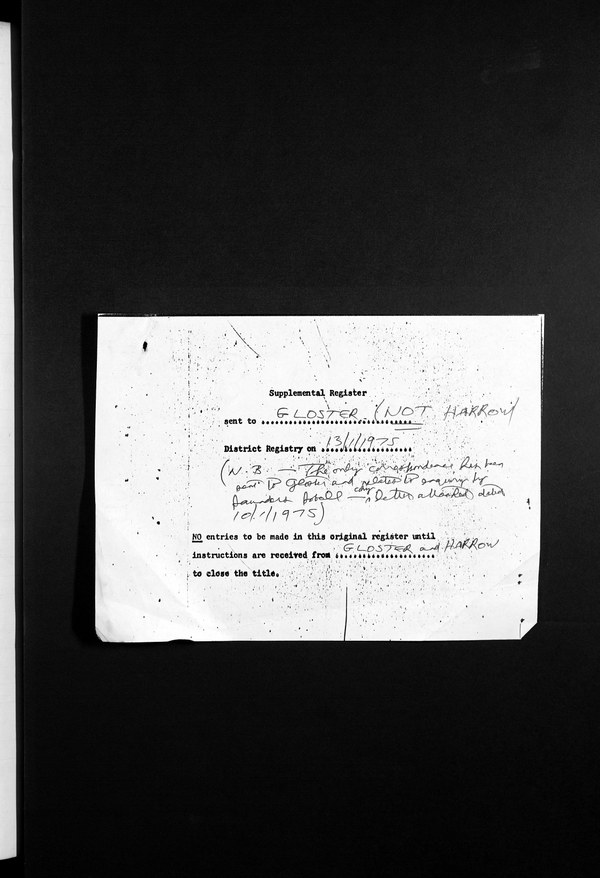 Supplemental Register
sent to GLOSTER. (NOT HARROW)
District Registry on 13/1/1975
(N.B. — The only correspondence has been
sent to Gloster and relates to enquiry by
Saunders — letter attached dated
10/1/1975)
NO entries to be made in this original register until
instructions are received from GLOSTER and HARROW
to close the title.